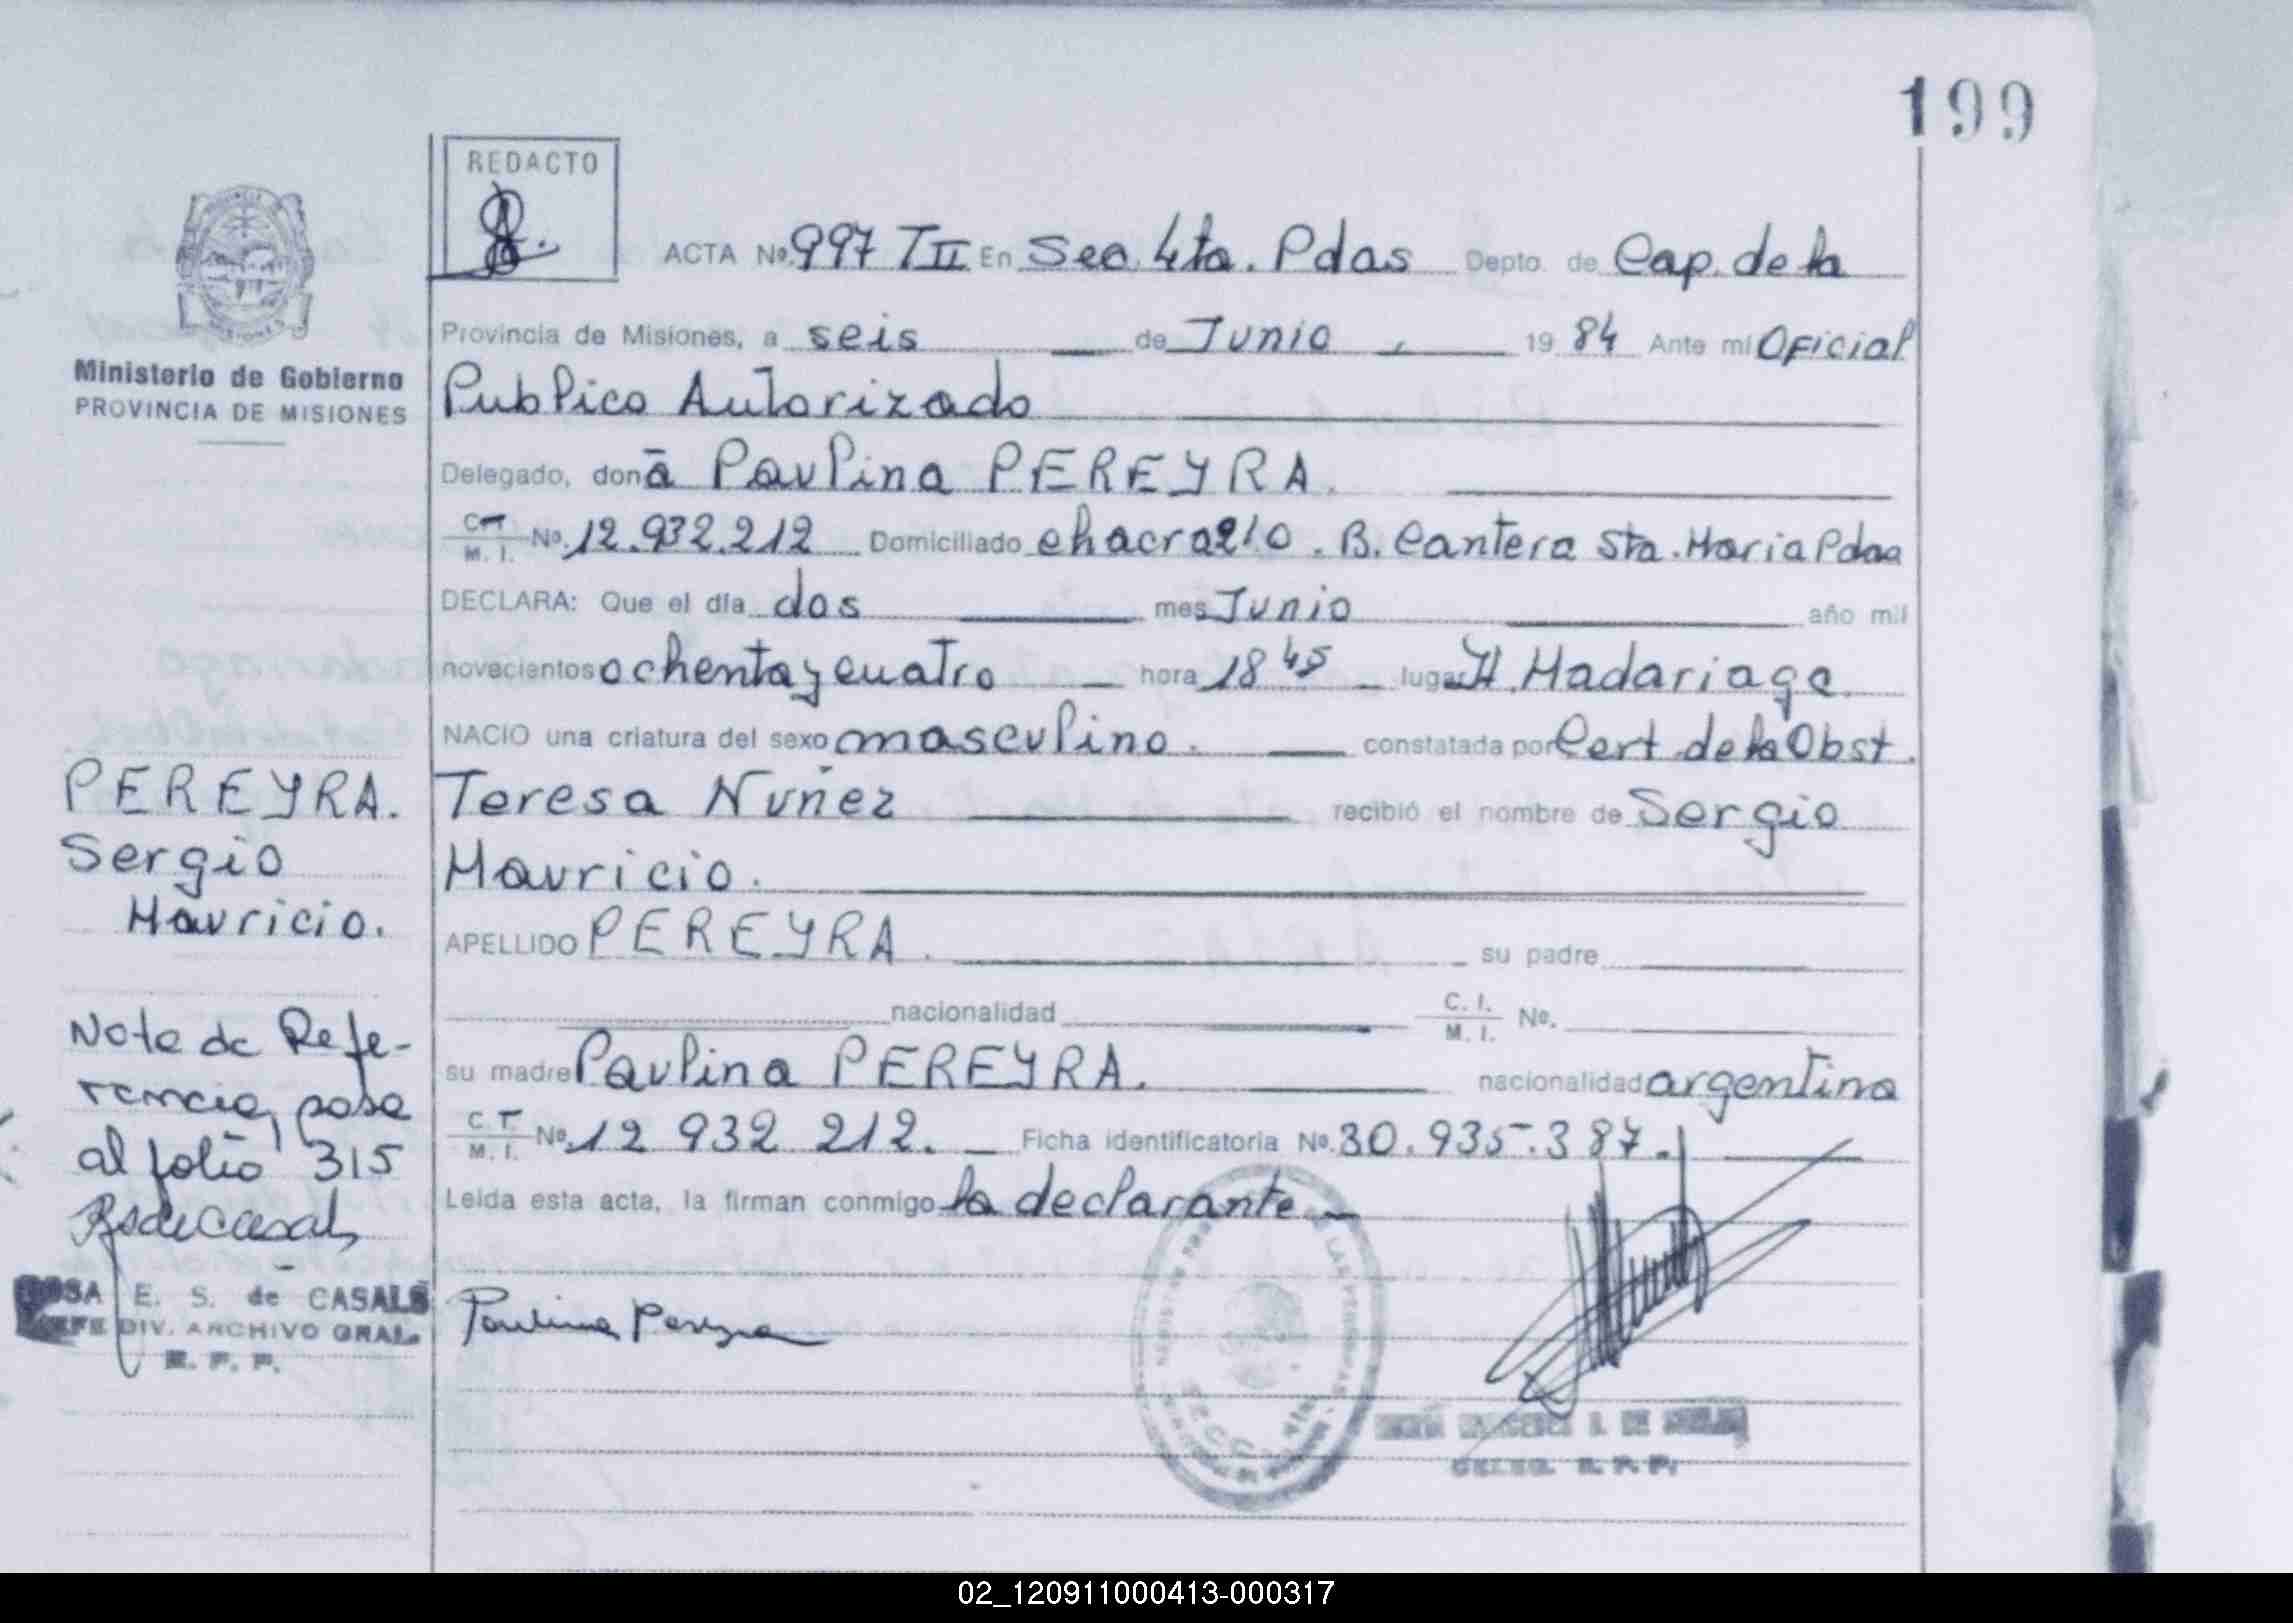 199
REDACTO
ACTA Nº 997 TII En Sec. 4ta. Pdas Depto. de Cap. de la
Provincia de Misiones, a seis de Junio 19 84 Ante mi Oficial
Publico Autorizado
Delegado, donā Paulina PEREYRA.
C.I. M. I. Nº. 12.932.212 Domiciliado chacra 210. B. Cantera Sta. Maria Pdas
DECLARA: Que el día dos mes Junio año mil
novecientos ochenta y cuatro hora 18 45 lugar H. Madariaga
NACIO una criatura del sexo masculino. constatada por Cert. de la Obst.
Teresa Nuñez recibió el nombre de Sergio
Mauricio.
APELLIDO PEREYRA. su padre
nacionalidad C. I. M. I. Nº.
su madre Paulina PEREYRA. nacionalidad argentina
C. I. M. I. Nº. 12 932 212. Ficha identificatoria Nº. 30.935.387.
Leída esta acta, la firman conmigo la declarante
Paulina Pereyra
DELEG. R. P. P.
MISIONES
Ministerio de Gobierno
PROVINCIA DE MISIONES
PEREYRA.
Sergio
Mauricio.
Nota de Refe-
rencia, pasa
al folio 315
ROSA E. S. de CASALS
JEFE DIV. ARCHIVO GRAL.
R. P. P.
02_120911000413-000317